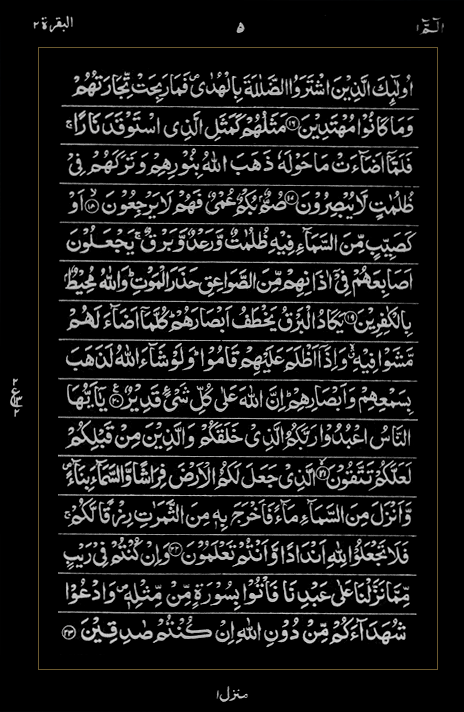 الٓمّٓ ١
٥
البقرة ٢
اُولٰٓئِكَ الَّذِيْنَ اشْتَرَوُا الضَّلٰلَةَ بِالْهُدٰى ۪ فَمَا رَبِحَتْ تِّجَارَتُهُمْ
وَمَا كَانُوْا مُهْتَدِيْنَ ﴿١٦﴾ مَثَلُهُمْ كَمَثَلِ الَّذِى اسْتَوْقَدَ نَارًا ۚ
فَلَمَّاۤ اَضَآءَتْ مَا حَوْلَهٗ ذَهَبَ اللّٰهُ بِنُوْرِهِمْ وَتَرَكَهُمْ فِىْ
ظُلُمٰتٍ لَّا يُبْصِرُوْنَ ﴿١٧﴾ صُمٌّۢ بُكْمٌ عُمْىٌ فَهُمْ لَا يَرْجِعُوْنَ ۙ﴿١٨﴾ اَوْ
كَصَيِّبٍ مِّنَ السَّمَآءِ فِيْهِ ظُلُمٰتٌ وَّرَعْدٌ وَّبَرْقٌ ۚ يَجْعَلُوْنَ
اَصَابِعَهُمْ فِىْۤ اٰذَانِهِمْ مِّنَ الصَّوَاعِقِ حَذَرَ الْمَوْتِ ؕ وَاللّٰهُ مُحِيْطٌۢ
بِالْكٰفِرِيْنَ ﴿١٩﴾ يَكَادُ الْبَرْقُ يَخْطَفُ اَبْصَارَهُمْ ؕ كُلَّمَاۤ اَضَآءَ لَهُمْ
مَّشَوْا فِيْهِ ۙ وَاِذَاۤ اَظْلَمَ عَلَيْهِمْ قَامُوْا ؕ وَلَوْ شَآءَ اللّٰهُ لَذَهَبَ
بِسَمْعِهِمْ وَاَبْصَارِهِمْ ؕ اِنَّ اللّٰهَ عَلٰى كُلِّ شَىْءٍ قَدِيْرٌ ﴿٢٠﴾ يٰۤاَيُّهَا
النَّاسُ اعْبُدُوْا رَبَّكُمُ الَّذِىْ خَلَقَكُمْ وَالَّذِيْنَ مِنْ قَبْلِكُمْ
لَعَلَّكُمْ تَتَّقُوْنَ ۙ﴿٢١﴾ الَّذِىْ جَعَلَ لَكُمُ الْاَرْضَ فِرَاشًا وَّالسَّمَآءَ بِنَآءً ۪
وَّاَنْزَلَ مِنَ السَّمَآءِ مَآءً فَاَخْرَجَ بِهٖ مِنَ الثَّمَرٰتِ رِزْقًا لَّكُمْ ۚ
فَلَا تَجْعَلُوْا لِلّٰهِ اَنْدَادًا وَّاَنْتُمْ تَعْلَمُوْنَ ﴿٢٢﴾ وَاِنْ كُنْتُمْ فِىْ رَيْبٍ
مِّمَّا نَزَّلْنَا عَلٰى عَبْدِنَا فَاْتُوْا بِسُوْرَةٍ مِّنْ مِّثْلِهٖ ۪ وَادْعُوْا
شُهَدَآءَكُمْ مِّنْ دُوْنِ اللّٰهِ اِنْ كُنْتُمْ صٰدِقِيْنَ ﴿٢٣﴾
٢
ع
٢
منزل ١